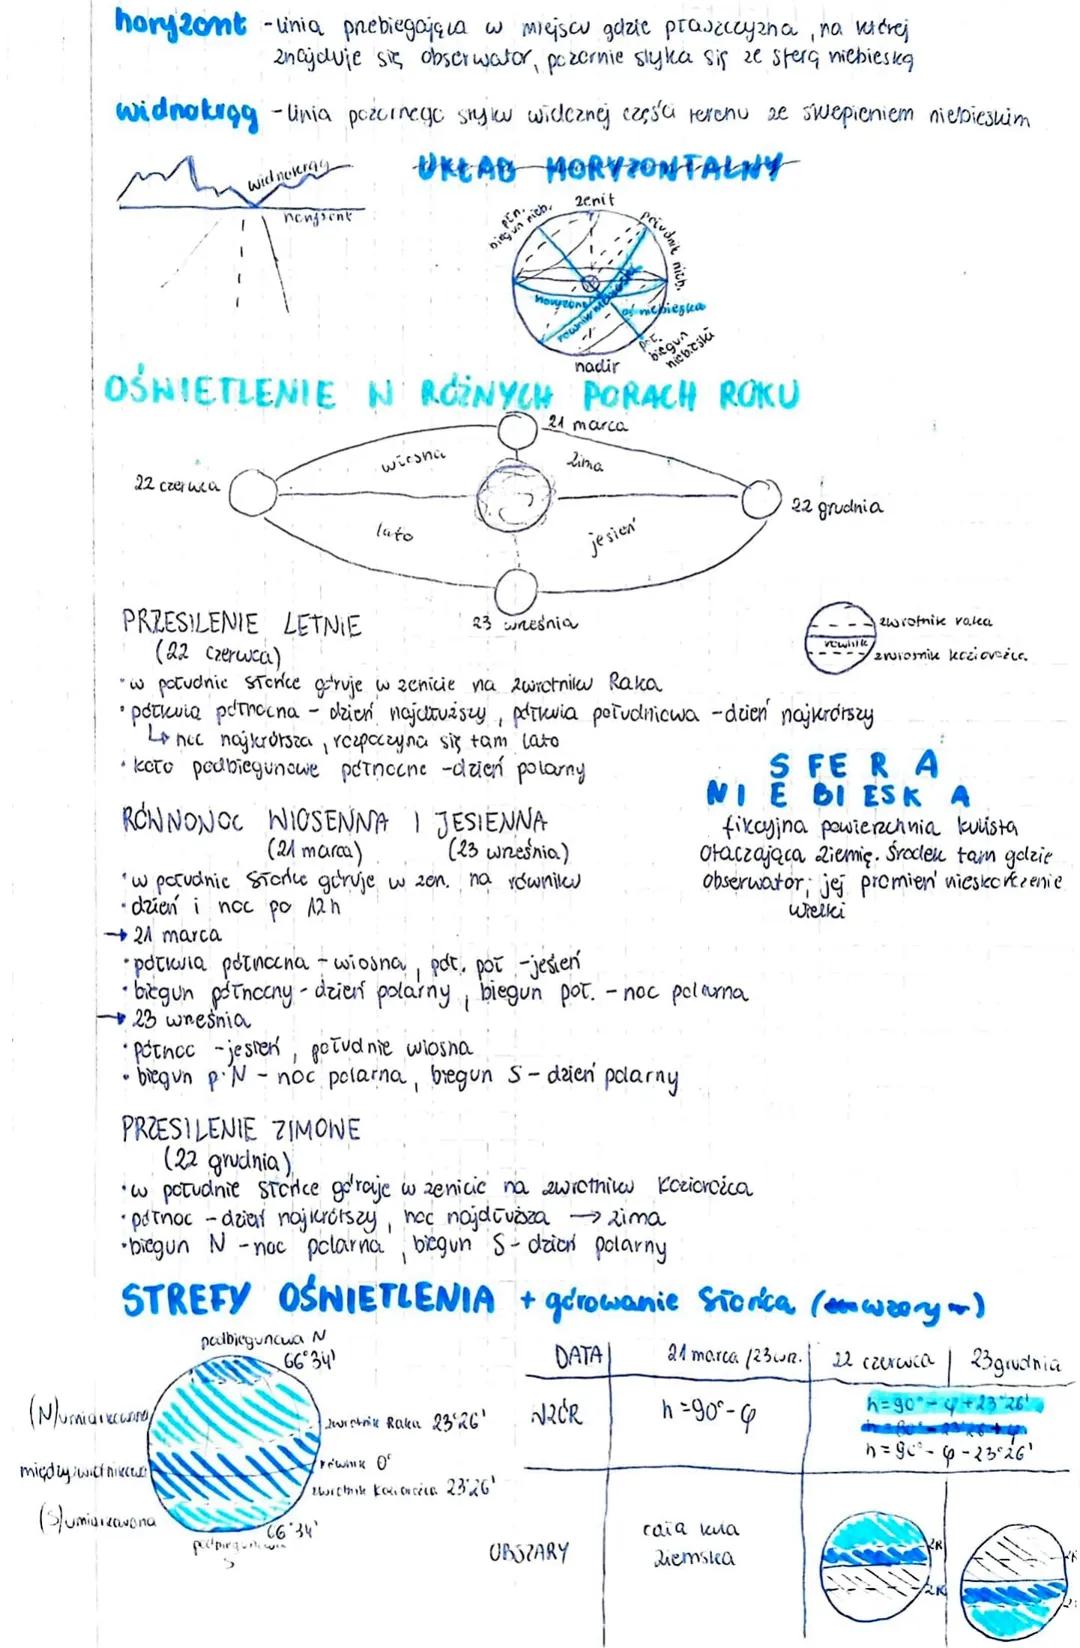 horyzont - linia przebiegająca w miejscu gdzie płaszczyzna, na której
znajduje się obserwator, pozornie styka się ze sferą niebieską
widnokrąg - linia pozornego styku widocznej części terenu ze sklepieniem niebieskim
widnokrąg
horyzont
UKŁAD HORYZONTALNY
zenit
płn. biegun nieb.
południk nieb.
horyzont
równik niebieski
oś niebieska
poł. biegun niebieski
nadir
OŚWIETLENIE W RÓŻNYCH PORACH ROKU
21 marca
wiosna
zima
22 czerwca
22 grudnia
lato
jesień
23 września
zwrotnik raka
równik
zwrotnik koziorożca
PRZESILENIE LETNIE
(22 czerwca)
• w południe Słońce góruje w zenicie na zwrotniku Raka
• półkula północna - dzień najdłuższy, półkula południowa - dzień najkrótszy
↳ noc najkrótsza, rozpoczyna się tam lato
• koło podbiegunowe północne - dzień polarny
SFERA
NIEBIESKA
fikcyjna powierzchnia kulista
otaczająca Ziemię. Środek tam gdzie
obserwator; jej promień nieskończenie
wielki
RÓWNONOC WIOSENNA I JESIENNA
(21 marca) (23 września)
• w południe Słońce góruje w zen. na równiku
• dzień i noc po 12h
→ 21 marca
• półkula północna - wiosna, pół. poł - jesień
• biegun północny - dzień polarny, biegun poł. - noc polarna
→ 23 września
• północ - jesień, południe wiosna
• biegun p. N - noc polarna, biegun S - dzień polarny
PRZESILENIE ZIMOWE
(22 grudnia)
• w południe Słońce góruje w zenicie na zwrotniku Koziorożca
• północ - dzień najkrótszy, noc najdłuższa → zima
• biegun N - noc polarna, biegun S - dzień polarny
STREFY OŚWIETLENIA + górowanie Słońca (wzory)
podbiegunowa N
66°34'
(N) umiarkowana
zwrotnik Raka 23°26'
międzyzwrotnikowa
równik 0°
zwrotnik Koziorożca 23°26'
(S) umiarkowana
66°34'
podbiegunowa
S
DATA 21 marca /23 wrz. 22 czerwca 23 grudnia
WZÓR h=90°-φ h=90°-φ+23°26'
h=90°-φ-23°26'
OBSZARY cała kula
ziemska
ZR
ZK